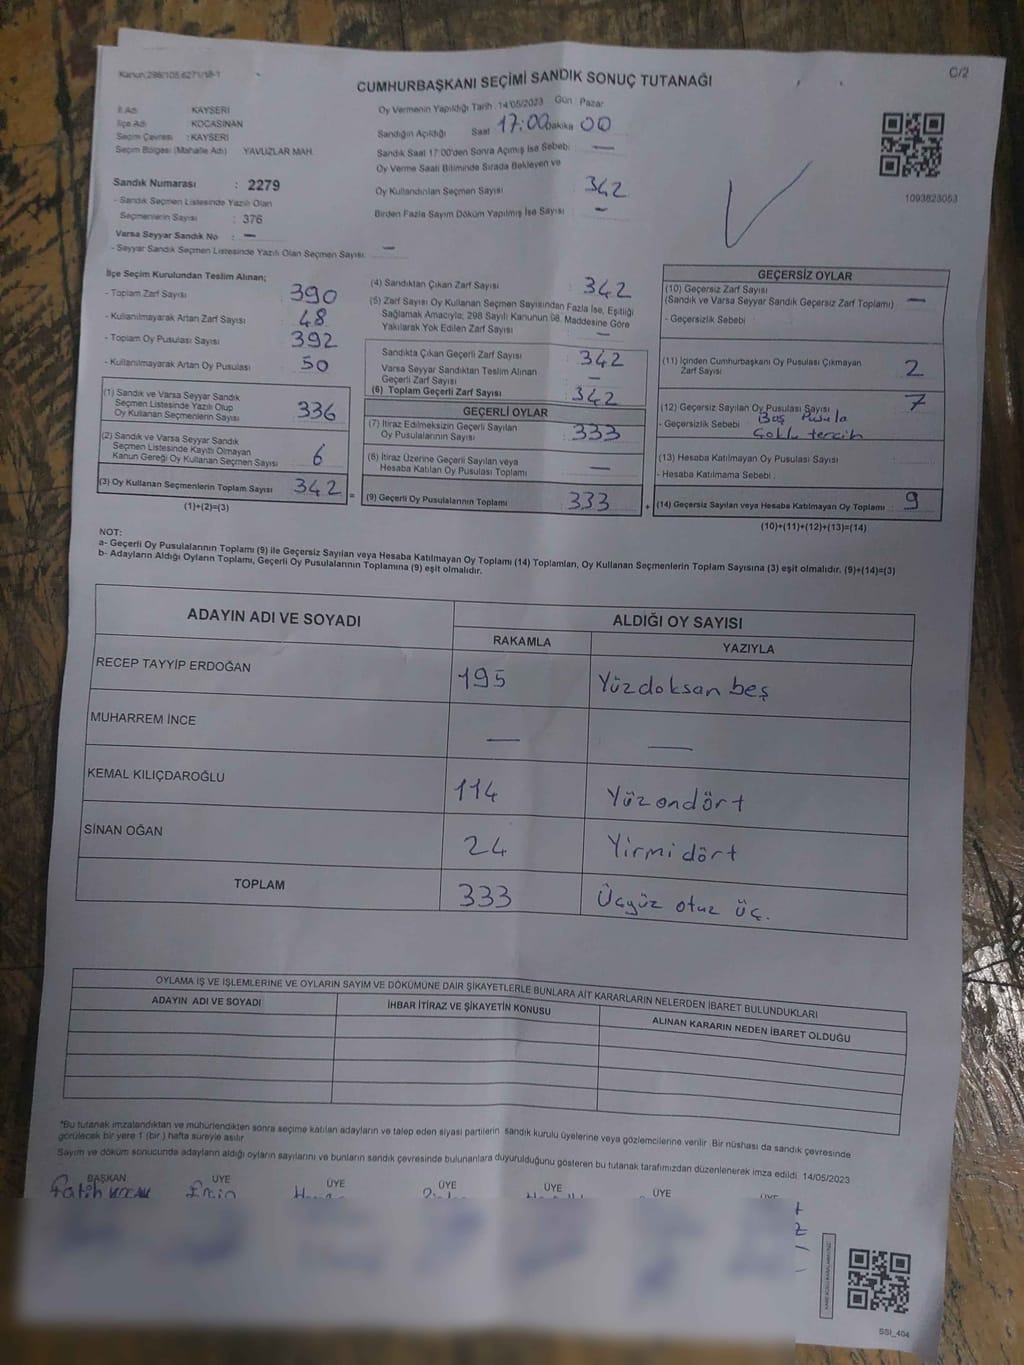 Kanun:298/105,6271/18-1
C/2
CUMHURBAŞKANI SEÇİMİ SANDIK SONUÇ TUTANAĞI
İl Adı : KAYSERİ
İlçe Adı : KOCASİNAN
Seçim Çevresi : KAYSERİ
Seçim Bölgesi (Mahalle Adı) YAVUZLAR MAH.
Oy Vermenin Yapıldığı Tarih : 14/05/2023 Gün : Pazar
Sandığın Açıldığı Saat 17:00 Dakika 00
Sandık Saat 17:00'den Sonra Açmış İse Sebebi : —
Oy Verme Saati Bitiminde Sırada Bekleyen ve
Oy Kullandırılan Seçmen Sayısı 342
Birden Fazla Sayım Döküm Yapılmış İse Sayısı : —
1093823053
Sandık Numarası : 2279
- Sandık Seçmen Listesinde Yazılı Olan
Seçmenlerin Sayısı : 376
Varsa Seyyar Sandık No : —
- Seyyar Sandık Seçmen Listesinde Yazılı Olan Seçmen Sayısı: —
İlçe Seçim Kurulundan Teslim Alınan;
- Toplam Zarf Sayısı : 390
- Kullanılmayarak Artan Zarf Sayısı : 48
- Toplam Oy Pusulası Sayısı : 392
- Kullanılmayarak Artan Oy Pusulası : 50
(1) Sandık ve Varsa Seyyar Sandık
Seçmen Listesinde Yazılı Olup
Oy Kullanan Seçmenlerin Sayısı : 336
(2) Sandık ve Varsa Seyyar Sandık
Seçmen Listesinde Kayıtlı Olmayan
Kanun Gereği Oy Kullanan Seçmen Sayısı : 6
(3) Oy Kullanan Seçmenlerin Toplam Sayısı : 342 =
(1)+(2)=(3)
(4) Sandıktan Çıkan Zarf Sayısı : 342
(5) Zarf Sayısı Oy Kullanan Seçmen Sayısından Fazla İse, Eşitliği
Sağlamak Amacıyla; 298 Sayılı Kanunun 98. Maddesine Göre
Yakılarak Yok Edilen Zarf Sayısı : —
Sandıkta Çıkan Geçerli Zarf Sayısı : 342
Varsa Seyyar Sandıktan Teslim Alınan
Geçerli Zarf Sayısı : —
(6) Toplam Geçerli Zarf Sayısı : 342
GEÇERLİ OYLAR
(7) İtiraz Edilmeksizin Geçerli Sayılan
Oy Pusulalarının Sayısı : 333
(8) İtiraz Üzerine Geçerli Sayılan veya
Hesaba Katılan Oy Pusulası Toplamı : —
(9) Geçerli Oy Pusulalarının Toplamı : 333 +
GEÇERSİZ OYLAR
(10) Geçersiz Zarf Sayısı
(Sandık ve Varsa Seyyar Sandık Geçersiz Zarf Toplamı) : —
- Geçersizlik Sebebi :
(11) İçinden Cumhurbaşkanı Oy Pusulası Çıkmayan
Zarf Sayısı : 2
(12) Geçersiz Sayılan Oy Pusulası Sayısı : 7
- Geçersizlik Sebebi : Boş Pusula
Çoklu tercih
(13) Hesaba Katılmayan Oy Pusulası Sayısı :
- Hesaba Katılmama Sebebi :
(14) Geçersiz Sayılan veya Hesaba Katılmayan Oy Toplamı : 9
(10)+(11)+(12)+(13)=(14)
NOT:
a- Geçerli Oy Pusulalarının Toplamı (9) ile Geçersiz Sayılan veya Hesaba Katılmayan Oy Toplamı (14) Toplamları, Oy Kullanan Seçmenlerin Toplam Sayısına (3) eşit olmalıdır. (9)+(14)=(3)
b- Adayların Aldığı Oyların Toplamı, Geçerli Oy Pusulalarının Toplamına (9) eşit olmalıdır.
ADAYIN ADI VE SOYADI ALDIĞI OY SAYISI
RAKAMLA YAZIYLA
RECEP TAYYİP ERDOĞAN 195 Yüzdoksan beş
MUHARREM İNCE — —
KEMAL KILIÇDAROĞLU 114 Yüzondört
SİNAN OĞAN 24 Yirmidört
TOPLAM 333 Üçyüz otuz üç.
OYLAMA İŞ VE İŞLEMLERİNE VE OYLARIN SAYIM VE DÖKÜMÜNE DAİR ŞİKAYETLERLE BUNLARA AİT KARARLARIN NELERDEN İBARET BULUNDUKLARI
ADAYIN ADI VE SOYADI İHBAR İTİRAZ VE ŞİKAYETİN KONUSU ALINAN KARARIN NEDEN İBARET OLDUĞU
*Bu tutanak imzalandıktan ve mühürlendikten sonra seçime katılan adayların ve talep eden siyasi partilerin sandık kurulu üyelerine veya gözlemcilerine verilir. Bir nüshası da sandık çevresinde
görülecek bir yere 1 (bir) hafta süreyle asılır
Sayım ve döküm sonucunda adayların aldığı oyların sayılarını ve bunların sandık çevresinde bulunanlara duyurulduğunu gösteren bu tutanak tarafımızdan düzenlenerek imza edildi. 14/05/2023
BAŞKAN ÜYE ÜYE ÜYE ÜYE ÜYE ÜYE
Fatih
SSI_404